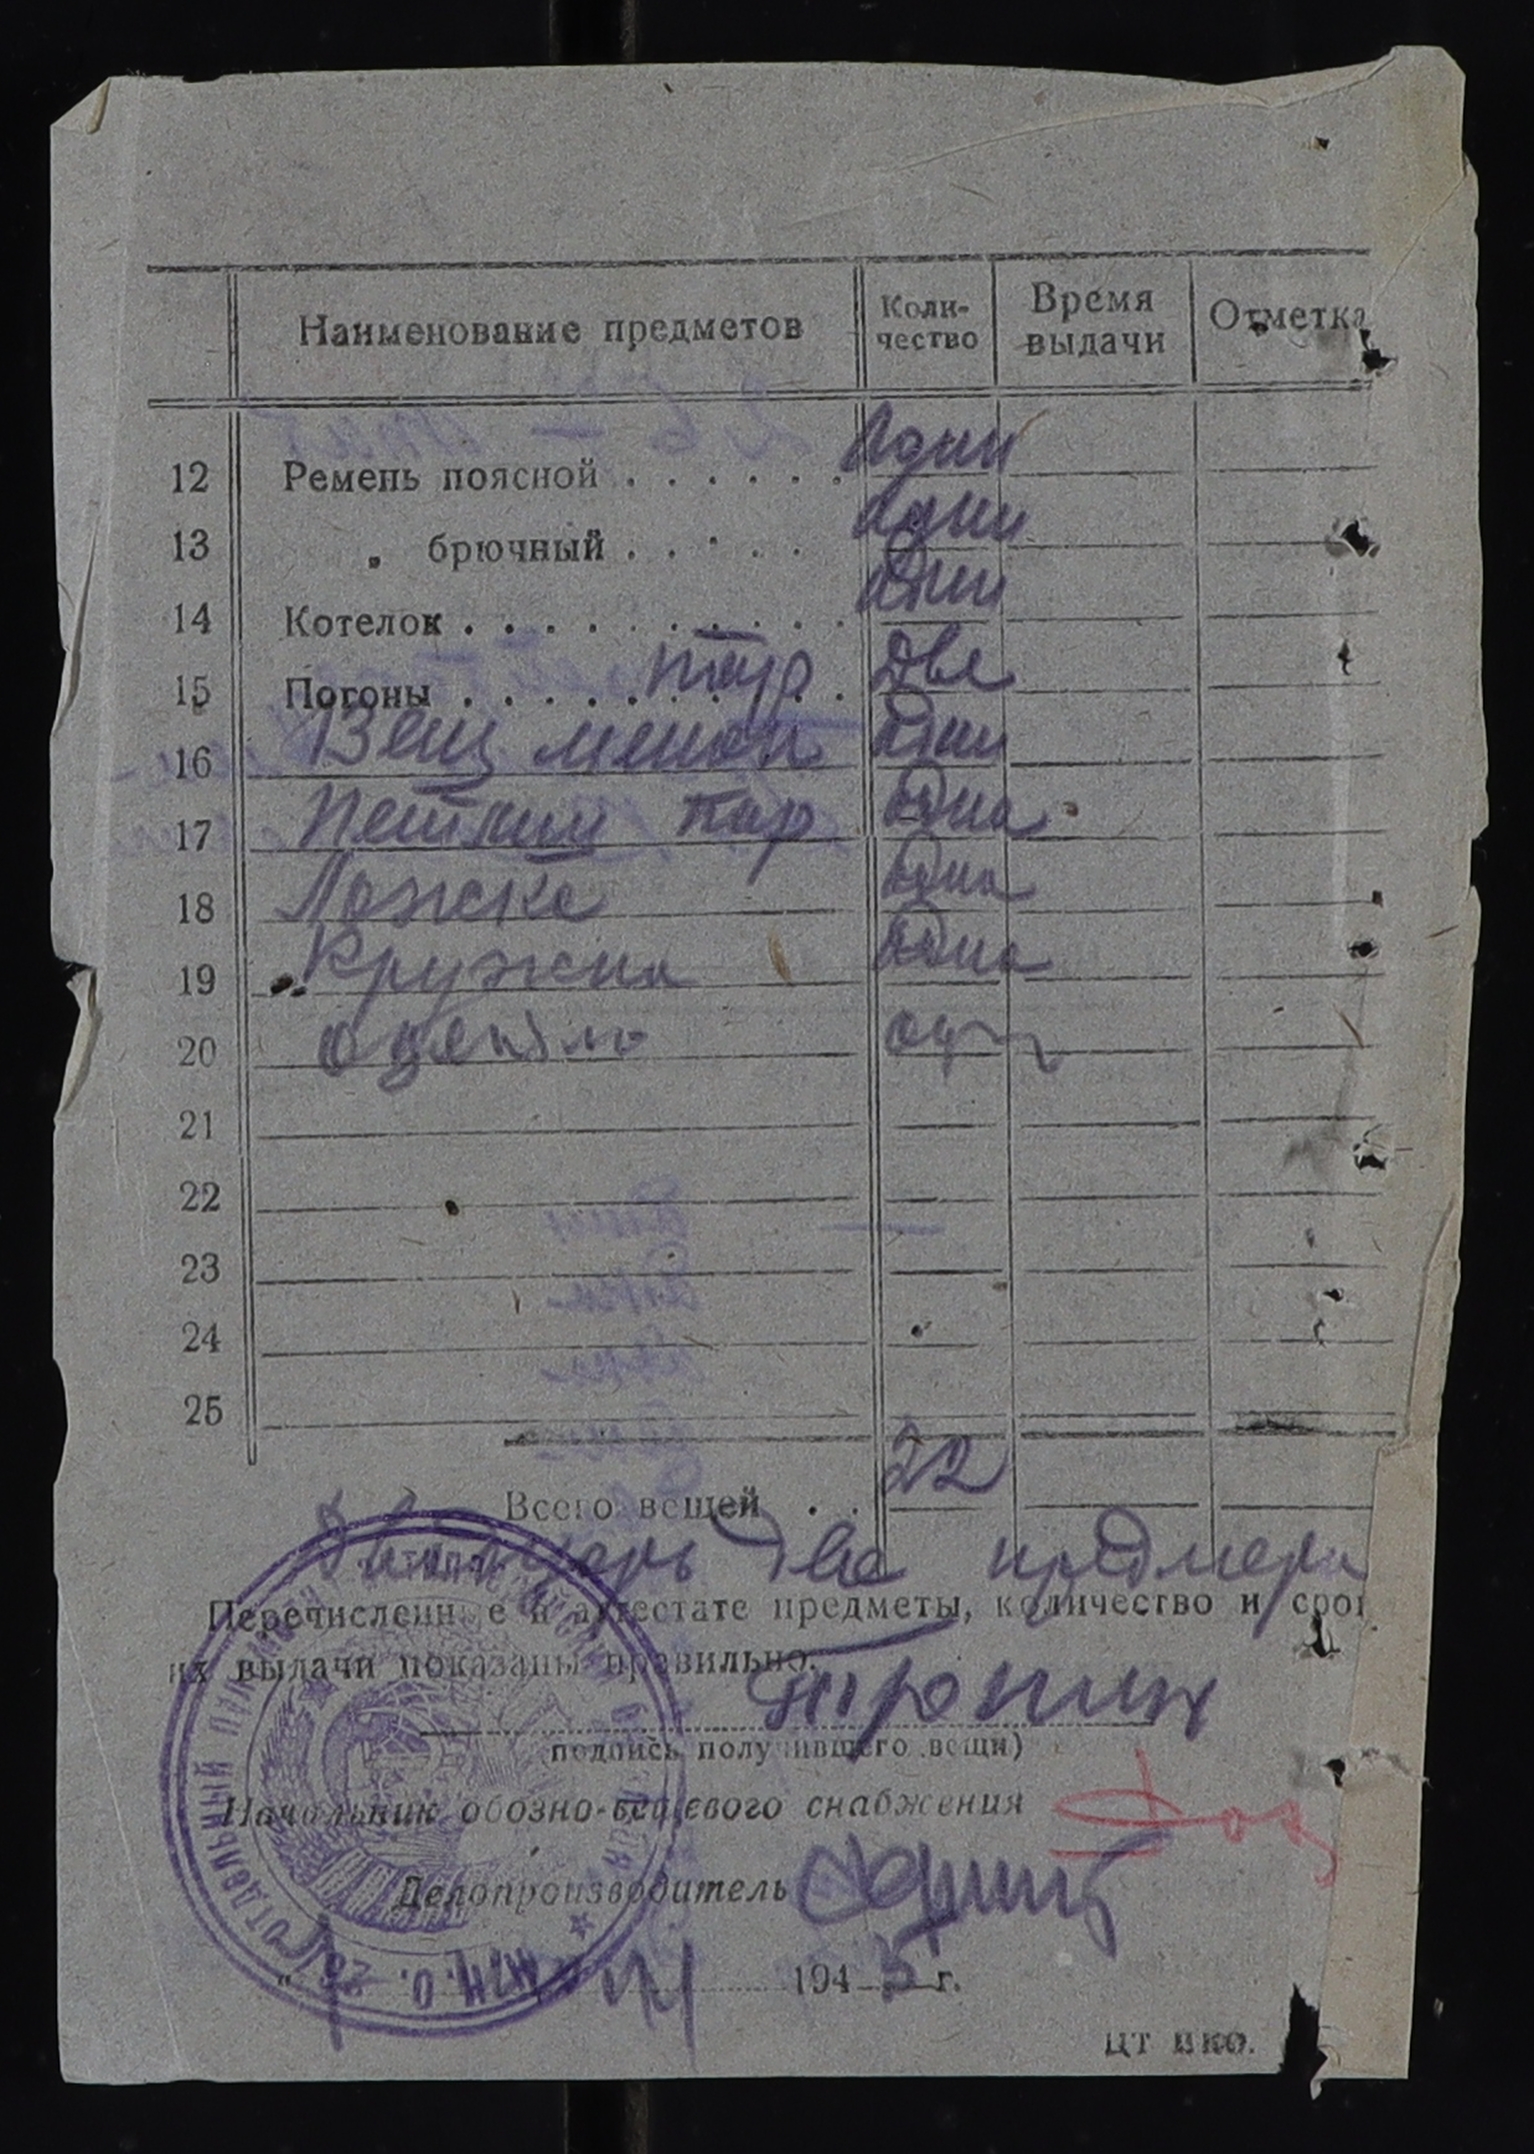 Наименование предметов Коли- Время Отметка
чество выдачи
12 Ремень поясной . . . . . . один
13 „ брючный . . . . . один
14 Котелок . . . . . . . . . . один
15 Погоны . . . . . . . . . . пар две
16 Вещ мешок один
17 Петлиц пар одна
18 Ложка одна
19 Кружка одна
20 одеяло
21
22
23
24
25
Всего вещей . . 22
Двадцать два предмета
Перечисленные в аттестате предметы, количество и
их выдачи показаны правильно.
подпись получившего вещи)
Начальник обозно-вещевого снабжения
Делопроизводитель
194 5 г.
ЦТ ВКО.
ОТДЕЛЬНЫЙ